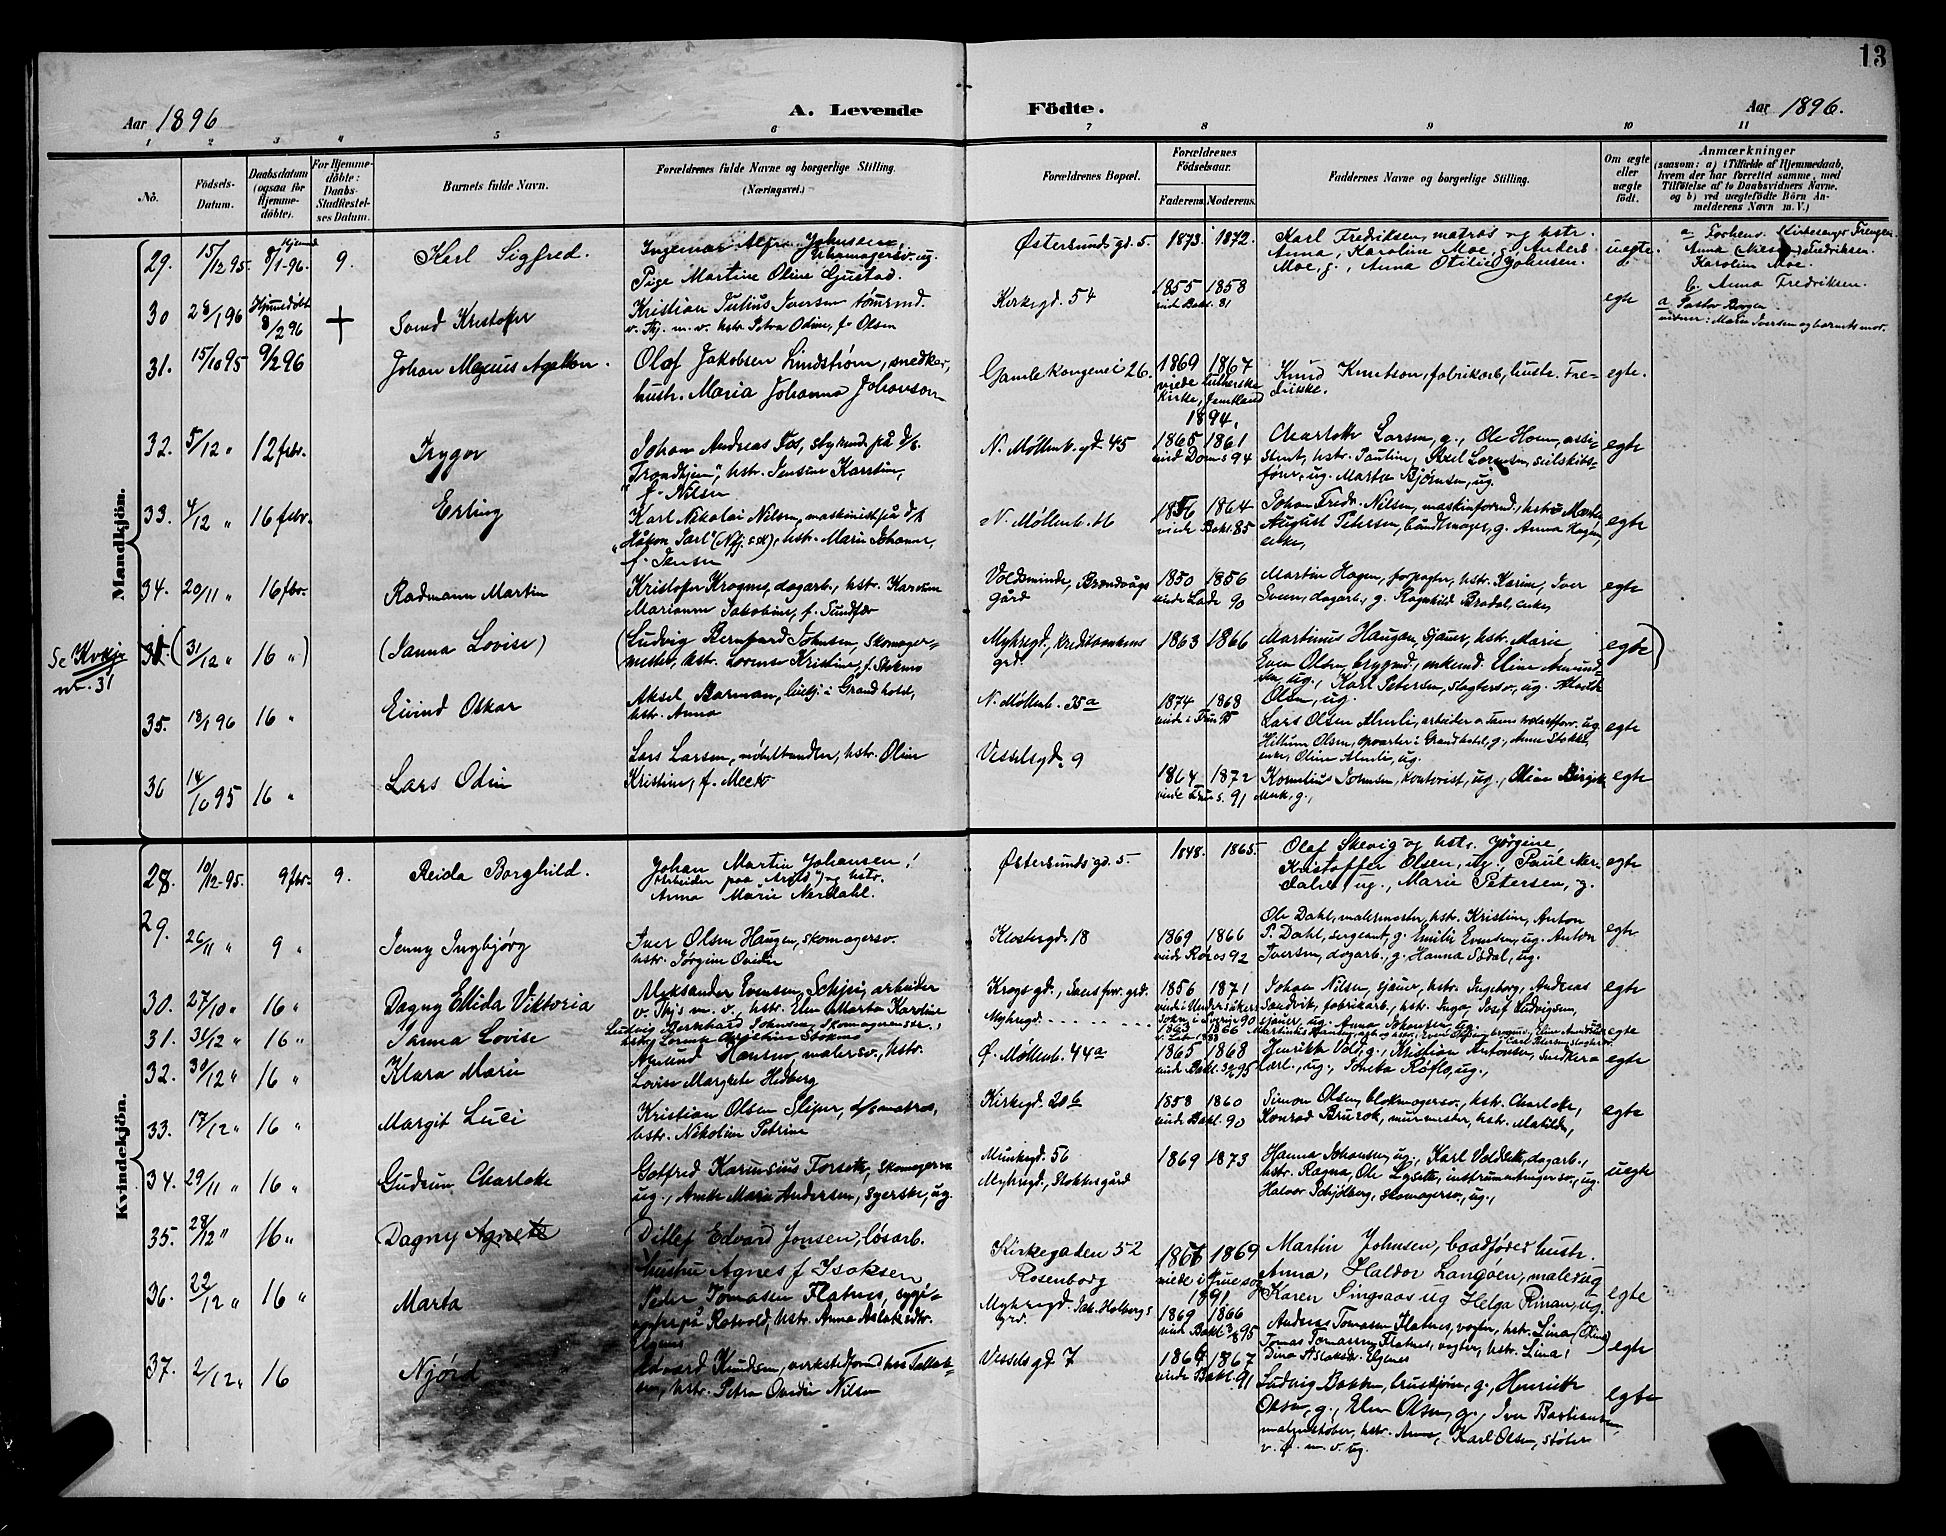 13
Aar 1896
A. Levende
Födte.
Aar 1896.
1 2 3 4 5 6 7 8 9 10 11
No.
Födsels-Datum.
Daabsdatum (ogsaa for Hjemme-døbte).
For Hjemme-døbte: Daabs-Stadfæstel-ses Datum.
Barnets fulde Navn.
Forældrenes fulde Navne og borgerlige Stilling.
(Næringsvei.)
Forældrenes Bopæl.
Forældrenes Födselsaar.
Faderens. Moderens.
Faddernes Navne og borgerlige Stilling.
Om ægte eller uægte født.
Anmærkninger
(saasom: a) i Tilfælde af Hjemmedaab, hvem der har forrettet samme, med Tilføielse af to Daabsvidners Navne, og b) ved uægtefødte Börn Anmelderens Navn m. V.)
Mandkjön.
29. 15/12 95. 8/1-96. 9. Karl Sigfred.
Pige Martine Oline Gustad.
Østersunds gd. 5. 1873. 1872.
Karl Fredriksen, matros og hstr.
Anna, Karoline Moe, g., Anders
Moe, g., Anna Otilie Johnsen.
uegte.
Karoline Moe.
b. Anna Fredriksen.
30 28/1 96 Hjemmedøbt 8/2 96 + Svend Kristofer
Kristian Julius Iversen tømmd.
v. Thj. m. v. hstr. Petra Odine, f. Olsen
Kirkegd. 54 1855 1858
vied Bakl. 81
egte
a Pastor Borgen
31. 15/10 95 9/2 96 Johan Magnus Agathon.
Olaf Jakobsen Lindstrøm, snedker,
hustr. Maria Johanna Johanson
Gamle kongevei 26. 1869 1867
viede lutherske
kirke, Jemtland
1894.
Knud Knutson, fabrikarb, hustr. Fredrikke.
egte.
32. 5/12 " 12 febr. Trygve
Johan Andreas Fos, styrmd på d/s.
"Trondhjem", hstr. Jensine Karstine,
f. Nilsen
N. Møllenb. gd. 45 1865 1861
vied Doms 94
Charlotte Larsen, g., Ole Hoem, assistent, hstr. Pauline, Axel Lorensen, seilskibsfører, ug. Marta Bjørnsen, ug.
egte
33. 4/12 " 16 febr. Erling
Karl Nikolai Nilsen, maskinist på d/s
"Håkon Jarl" (Nfj. s.sk), hstr. Marie Johanne,
f. Jensen
N. Møllenb. 1864
viede Bakl. 85
Johan Fredr. Nilsen, maskinformd, hstru Marta,
August Petersen, bundtmager, g. Anna Hagen,
enke,
egte
34. 20/11 " 16 febr. Radmann Martin
Kristofer Krognes, dagarb., hstr. Karoline
Marianne Jakobine, f. Sundfær
Voldsminde, Brandvagts
gård 1850 1856
viede Lade 90
Martin Hagen, forpagter, hstr. Karine, Iver
Svem, dagarb., g. Ragnhild Bradal, enke,
egte
Se Kvkjø
nr. 31
35 (31/12 " 16 ") (Janna Lovise)
(Ludvig Bernhard Johnsen, skomagermester, hstr. Lorense Kristine, f. Stokmo
Myhregd., Kreditbankens
grd. 1863 1866
Martinus Haugan, sjauer, hstr. Marie
Even Olsen, brygmd., enkemd. Eline Amundsen, ug., Karl Petersen, slagtersv., ug. Matilde
Olsen, ug.
egte)
35. 18/1 96 16 " Eivind Oskar
Aksel Barman, livkj. i Grand hotel,
hstr. Anna
N. Møllenb. 35a 1874 1868
viede i Frue 95
Lars Olsen Almli, arbeider
enke, Oline Almli, ug.
egte
36 14/10 95 16 " Lars Odin
Lars Larsen, møbelhandler, hstr. Oline
Kristine, f. Meek
Vesselsgd. 9
1864 1872
viede Frue s. 91
Kornelius Johnsen, kontorist, ug., Oline Birgitte
Meek, g.,
egte
Kvindekjön.
28. 10/12-95. 9 febr. 9. Reida Borghild.
Johan Martin Johansen,
Anna Marie Nerdahl.
Østersunds gd. 5. 1848. 1865.
Olaf Skevig og hst. Jørgine,
Kristoffer Olsen, ug. Paul Nerdahl, ug., Marie Petersen, g.
egte
29. 26/11 " 9 " Jenny Ingbjørg
Iver Olsen Haugen, skomagersv.
hstr. Jørgine Ovidie
Klostergd. 18 1869 1866
viede Røros 92
Ole Dahl, malermester, hstr. Kristine, Anton
P. Dahl, sergeant, g. Emilie Evensen, ug. Anton
Iversen, dagarb., g. Hanna Sødal, ug.
egte
30. 27/10 " 16 " Dagny Ellida Viktoria
Aleksander Evensen Schjei, arbeider
v. Thj's m. v., hstr. Elen Marta Karoline
Krogs gd., Jansfor. grd. 1856 1871
viede i Undersåkers
sokn, i Sverig 90
Johan Nilsen, sjauer, hstr. Ingeborg, Andreas
Sandvik, fabrikarb., hstr. Inga, Josef Ludvigsen,
egte
31. 31/12 " 16 " Janna Lovise
Ludvig Bernhard Johnsen, Skomagermestr.,
hstr. Lorense Christine Stokmo
Myhregd. 1863 1866
egte
32. 30/12 " 16 " Klara Marie
Amund Hansen, malersv., hstr.
Lovise Margrete Hedberg
Ø. Møllenb. 44a 1865 1868
Henrikke Vold, g., Kristian Antonsen, snedker
egte
33. 17/12 " 16 " Margit Luci
Kristian Olsen Sliper, d/s matros,
hstr. Nikoline Petrine
Kirkegd. 20b 1858 1860
viede Bakl. 90
Simon Olsen, blokmagersv., hstr. Charlotte,
Konrad Brurok, murmester, hstr. Matilde,
egte
34. 29/11 " 16 " Gudrun Charlotte
Gotfred Karinsius Forseth, skomagersv.
ug., Anette Marie Andersen, syerske, ug.
Munkegd. 56
Myhregd., Stokkesgård
1869 1873
Hanna Johansen, ug., Karl Voldseth, dagarb.,
hstr. Ragna, Ole Lyseth, instrumentmagersv., ug.
Halvor Schjølberg, skomagersv., ug.,
uegte
35. 28/12 " 16 " Dagny Agnete
Ditlef Edvard Jonsen, løsarb.
hustru Agnes f Isaksen
Kirkegaden 52
Rosenborg
1866 1869
viede i Frue sog
1891
Martin Johnsen, baadfører hustr.
Anna, Haldor Langøen, maler ug
Karen Singsaas ug Helga Rinan, ug.
egte
36. 22/12 " 16 " Marta
Peder Tomasen Flatnes, sygevogter på Rotvold, hstr. Anna Aslaksdtr.
Elgnes
Myhregd. Jak. Holbergs
grd. 1869 1866
viede Bakl. 3/8 95
Andreas Tomasen Flatnes, vogter, hstr. Lina (Oline)
Tomas Tomassen Flatnes, vogter, hstr. Lina,
Dina Aslaksdr. Elgnes
egte
37. 2/12 " 16 Njørd
Edvard Knudsen, verkstedformd
hstr. Petra Ovidie Nilsen
Vesselsgd. 7 1864 1867
viede Bakl. 91
Ludvig Bakken, brusktjørn, g., Henrikke
Olsen, g., Elen Olsen, g., Iver Bastiansen,
hstr. Anna, Karl Olsen, støber
v. Ø. m. v. ug.
egte